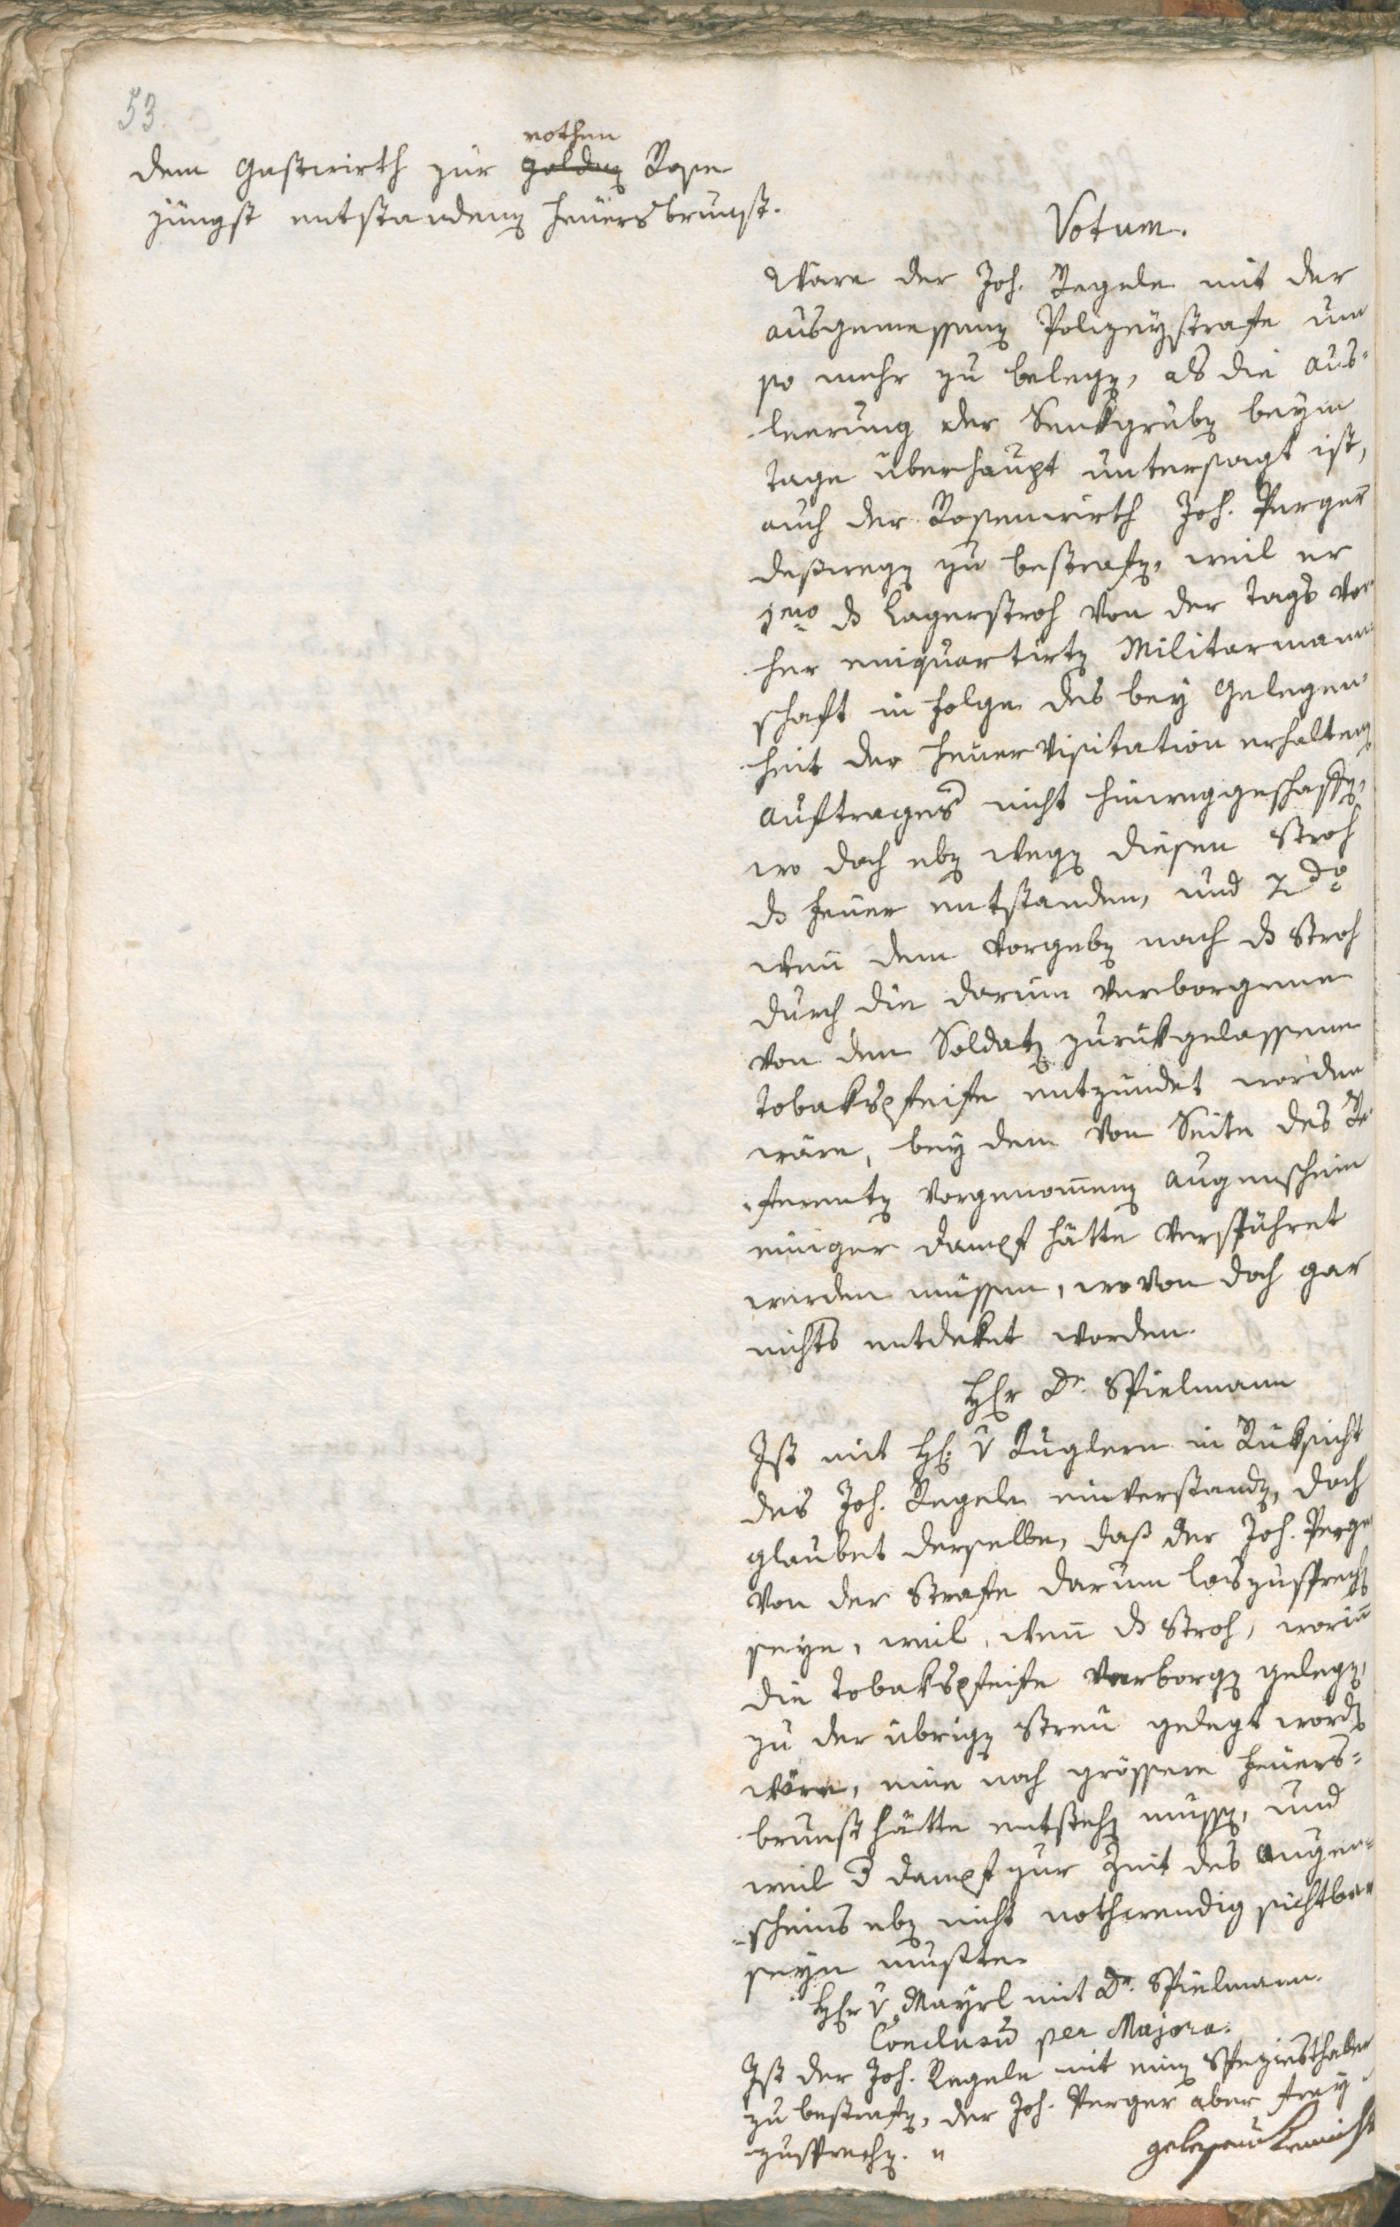 53.
rothen
dem Gastwirth zur goldn Rose
jüngst entstandenen Feuersbrunst.
Votum.
Wäre der Joh. Regele mit der
ausgemessenen Polizeystrafe um
so mehr zu belegen, als die Aus-
leerung der Senkgruben beym
Tage überhaupt untersagt ist,
auch der Rosenwirth Joh. Perger
deßwegen zu bestrafen, weil er
1mo ds Lagerstroh von der tags vor
her einquartirten Militarmann
schaft in Folge des bey Gelegen-
heit der Feuervisitation erhaltenen
Auftrages nicht hinweggeschaffen,
wo doch eben wegen diesen Stroh
ds Feuer entstanden, und 2do
wenn dem Vorgeben nach ds Stroh
durch die darinn verborgene
von den Soldaten zurükgelassene
Tobakspfeife entzündet worden
wäre, bey dem von Seite des Re-
ferenten vorgenommenen Augenschein
einiger Dampf hätte verspühret
werden müssen, wovon doch gar
nichts entdeket worden.
Herr Dr. Spielmann
Ist mit H. v Kuglern in Rüksicht
des Joh. Regele einverstanden, doch
glaubet derselbe, daß der Joh. Perger
von der Strafe darum loszusprechen
seye, weil, wenn ds Stroh, worinn
die Tobakspfeife verborgen gelegen,
zu der übrigen Streu gelegt worden
wäre, eine noch grössere Feuers-
brunst hätte entstehen müssen, und
weil d Dampf zur Zeit des Augen-
scheins eben nicht nothwendig sichtbar
seyn mußte.
Herr v Mayrl mit Dr. Spielmann.
Conclusum per Majora.
Ist der Joh. Regele mit einen Speziesthaler
zu bestrafen, der Joh. Perger aber frey
zusprechen.